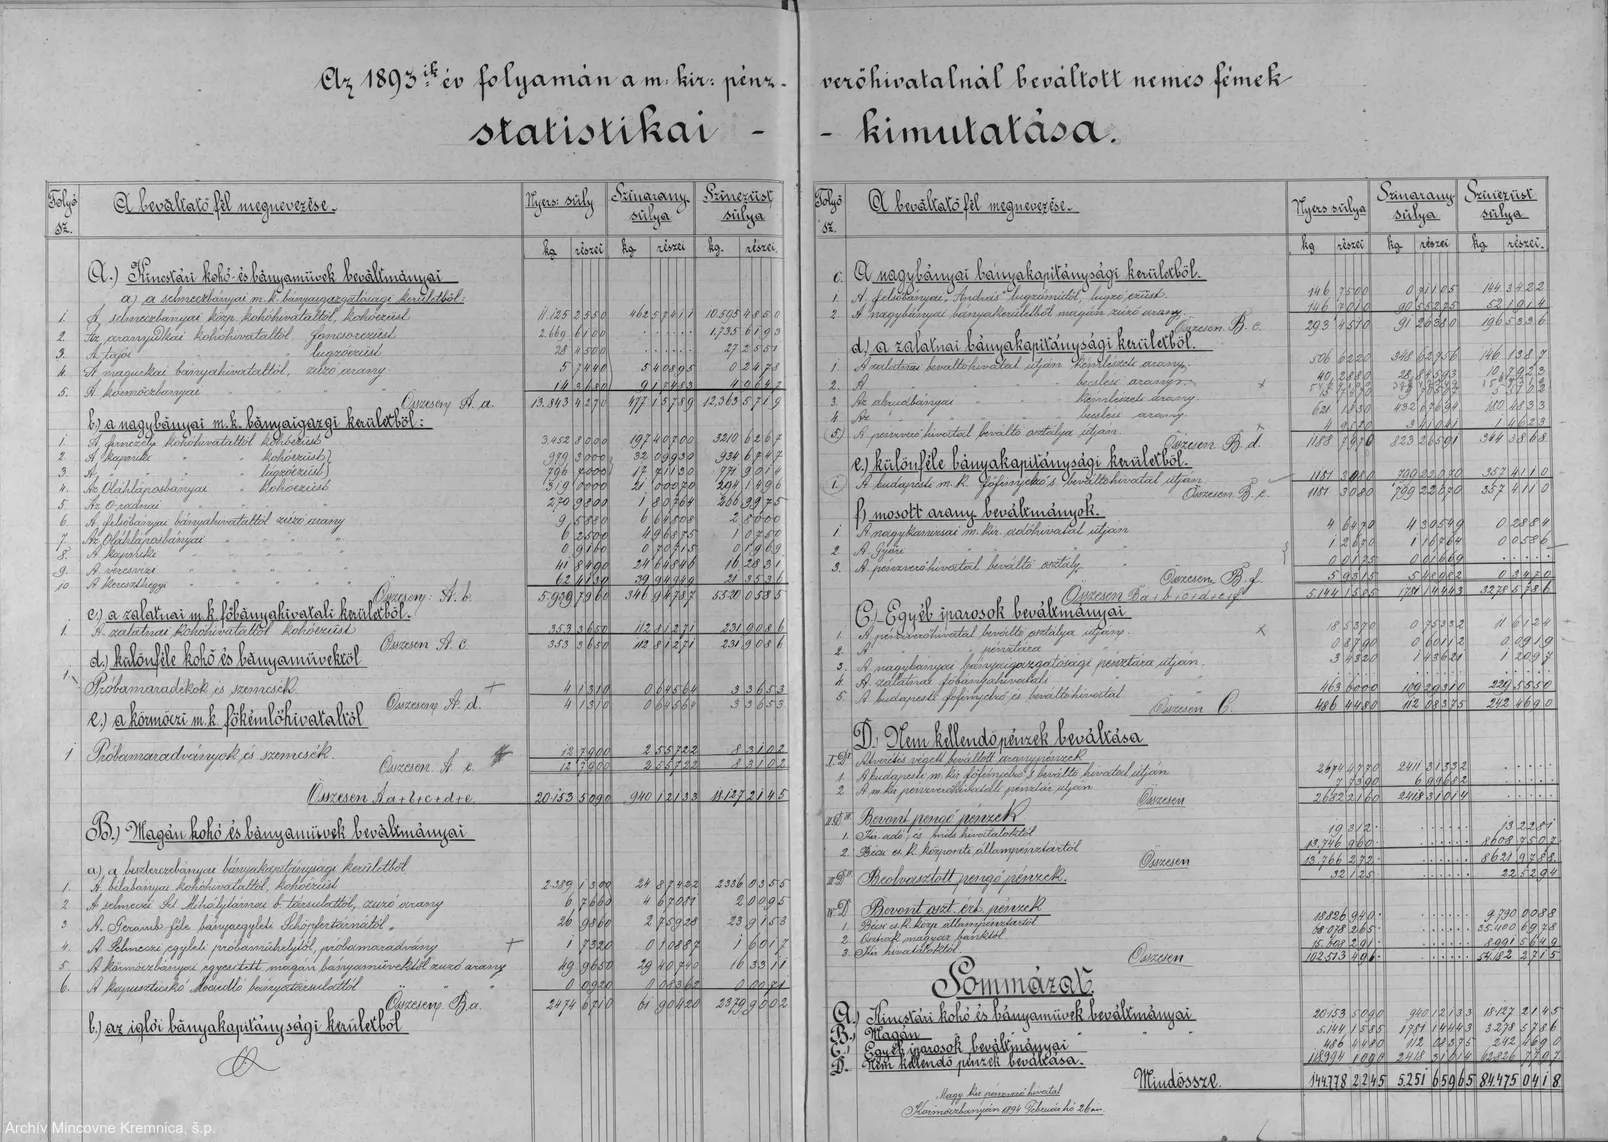 Az 1893ik év folyamán a m: kir: pénz-
statistikai -
Folyó sz.
A beváltató fél megnevezése.
Nyers: súly
Színarany súlya
Színezüst súlya
kg részei kg részei kg. részei
A.) Kincstári kohó- és bányaművek beváltmányai
a) a selmeczbányai m.k. bányaigazgatósági kerületből:
1. A selmeczbányai közp. kohóhivataltól, kohóezüst 11.125 2550 462 57411 10.595 4850
2. Az aranyidkai kohóhivataltól foncsorezüst 2.669 6100 1.735 6193
3. A tajói " lugzóezüst 28 4500 27 2551
4. A magurkai bányahivataltól, zúzó arany 5 7440 5 40895 0 2478
5. A körmöczbányai " " 14 3680 9 17483 4 9647
Összesen A. a. 13.843 4270 477 15789 12,363 5719
b.) a nagybányai m.k. bányaigazgi kerületből:
1. A fernezelyi kohóhivataltól kohóezüst 3.452 8000 197 40700 3210 6267
2. A kapniki " kohóezüst 979 3000 32 09930 934 6747
3. A " " 796 7000 17 71130 771 9014
4. Az Oláhláposbányai " kohóezüst 319 0000 21 00070 294 1496
5. Az O-radnai " " 270 9800 1 80764 266 3975
6. A felsőbányai bányahivataltól zúzó arany 9 5880 6 64508 2 5000
7. Az Oláhláposbányai " " " 6 2500 4 96875 1 0750
8. A kapniki " " " 0 9160 0 70715 0 1969
9. A veresvizi " " " 41 8490 24 64846 16 2831
10. A kereszthegyi " " " 62 4130 39 94949 21 3536
Összesen: A. b. 5.939 7960 346 94787 5.520 0585
c.) a zalatnai m.k. főbányahivatali kerületből.
1. A zalatnai kohóhivataltól kohóezüst 353 3650 112 81271 231 9086
Összesen A. c. 353 3650 112 81271 231 9086
d.) különféle kohó és bányaművektől
1. Próbamaradékok és szemcsék. 4 1310 0 64564 3 3653
Összesen A. d. 4 1310 0 64564 3 3653
e.) a körmöczi m.k. főkémlőhivataltól
1 Próbamaradványok és szemcsék. 12 7900 2 55722 8 3102
Összesen. A. e. 12 7900 2 55722 8 3102
Összesen A a+b+c+d+e. 20.153 5090 940 12133 18.127 2145
B.) Magán kohó és bányaművek beváltmányai
a.) a beszterczebányai bányakapitánysági kerületből
1. A bélabányai kohóhivataltól, kohóezüst 2.389 1300 24 87422 2336 0355
2. A selmeczi Szt Mihálytárnai b. társulattól, zúzó arany 6 7660 4 67081 2 0095
3. A Geramb féle bányaegyleti Schöpfertárnától " 26 9860 2 75928 23 9153
4. A Selmeczi egyleti próbaműhelytől, próbamaradvány 1 7320 0 10887 1 6017
5 A körmöczbányai egyesített magán bányaművektől zúzó arany 49 9650 29 40740 16 3311
6. bányatársulattól " " 0 0920 0 08362 0 0071
Összesen B.a. 2474 6710 61 90420 2379 9002
b.) az iglói bánya kapitánysági kerületből
verőhivatalnál beváltott nemes fémek
- kimutatása.
Folyó sz.
A beváltató fél megnevezése.
Nyers súlya
Színarany súlya
Színezüst súlya
kg részei kg részei kg. részei.
c. A nagybányai bányakapitánysági kerületből.
1. A felsőbányai "András" lugzóműtől, lugzó ezüst. 146 7500 0 71105 144 3422
2. A nagybányai bányakerületből magán zúzó arany 146 7010 90 55275 52 1914
Összesen B. c. 293 4510 91 26380 196 5336
d.) a zalatnai bányakapitánysági kerületből.
1 A zalatnai beváltóhivatal útján kémlészeti arany. 506 6220 348 62956 146 1387
2. A " " becslési arany. 40 2880
3. Az abrudbányai " kémlészeti arany. 621 1850 432 07694 180 4833
4 Az " " becslési arany.
5) A pénzverő hivatal beváltó osztálya útján. 4 9520 3 41041 1 4623
Összesen B. d. 1188 7970 823 26591 344 3868
e.) különféle bányakapitánysági kerületből.
1. A budapesti m.k. főfémjelző s beváltóhivatal útján 1181 3080 799 22070 357 4110
Összesen B. e. 1181 3080 799 22070 357 4110
f.) mosott arany beváltmányok.
1 A nagykanizsai m. kir. adóhivatal útján 4 6470 4 30549 0 2884
2 A Győri " " 1 2670 1 16764 0 0586
3. A pénzverőhivatal beváltó osztály 0 0175 0 01669
Összesen B. f. 5 9315 5 48982 0 3470
Összesen B a+b+c+d+e+f 5.144 1585 1781 14443 3278 5786
C.) Egyéb iparosok beváltmányai
1. A pénzverőhivatal beváltó osztálya útján. 18 5370 0 75332 11 6124
2. A " pénztára " 0 8790 0 60112 0 0919
3. A nagybányai bányaigazgatósági pénztára útján. 3 4320 1 43621 1 2097
4. A zalatnai főbányahivatali " "
5. A budapesti főfémjelző és beváltóhivatal 463 6000 109 29310 229 5550
Összesen C. 486 4480 112 08375 242 4690
D.) Nem kellendő pénzek beváltása
I. D. Átverétés végett beváltott aranypénzek
1. A budapesti m. kir. főfémjelző s beváltó hivatal útján 2644 4770 2411 31332
2 A m kir pénzverőhivatali pénztár útján 7 7390 6 99682
Összesen 2652 2160 2418 31014
II. D. Bevont pengő pénzek
1. Kir. adó, és más hivataloktól 19 312 13 2281
2. Bécsi cs.k. központi állampénztártól 13,746 960 8608 7507
Összesen 13,766 272 8621 9788
III D Beolvasztott pengő pénzek. 32 125 22 5294
IV. D Bevont oszt. ért. pénzek
1. Bécsi cs.k. közp. állampénztártól 18826 940 9.790 0088
2. Osztrák magyar banktól 68.078 265 35.400 6978
3. Kir. hivataloktól 15.608 291 8.991 5649
Összesen 102.513 496 54.182 2715
Sommázat.
A.) Kincstári kohó és bányaművek beváltmányai 20153 5090 940 12133 18127 2145
B.) Magán " " " 5.144 1585 1781 14443 3.278 5786
C.) Egyéb iparosok beváltmányai 486 4480 112 08375 242 4690
D. Nem kellendő pénzek beváltása. 118994 1090 2418 31014 62.826 7797
Mindössze. 144.778 2245 5.251 65965 84.475 0418
Magy kir pénzverő hivatal
Körmöczbányán 1894 Februárhó 26án
Archív Mincovne Kremnica, š.p.